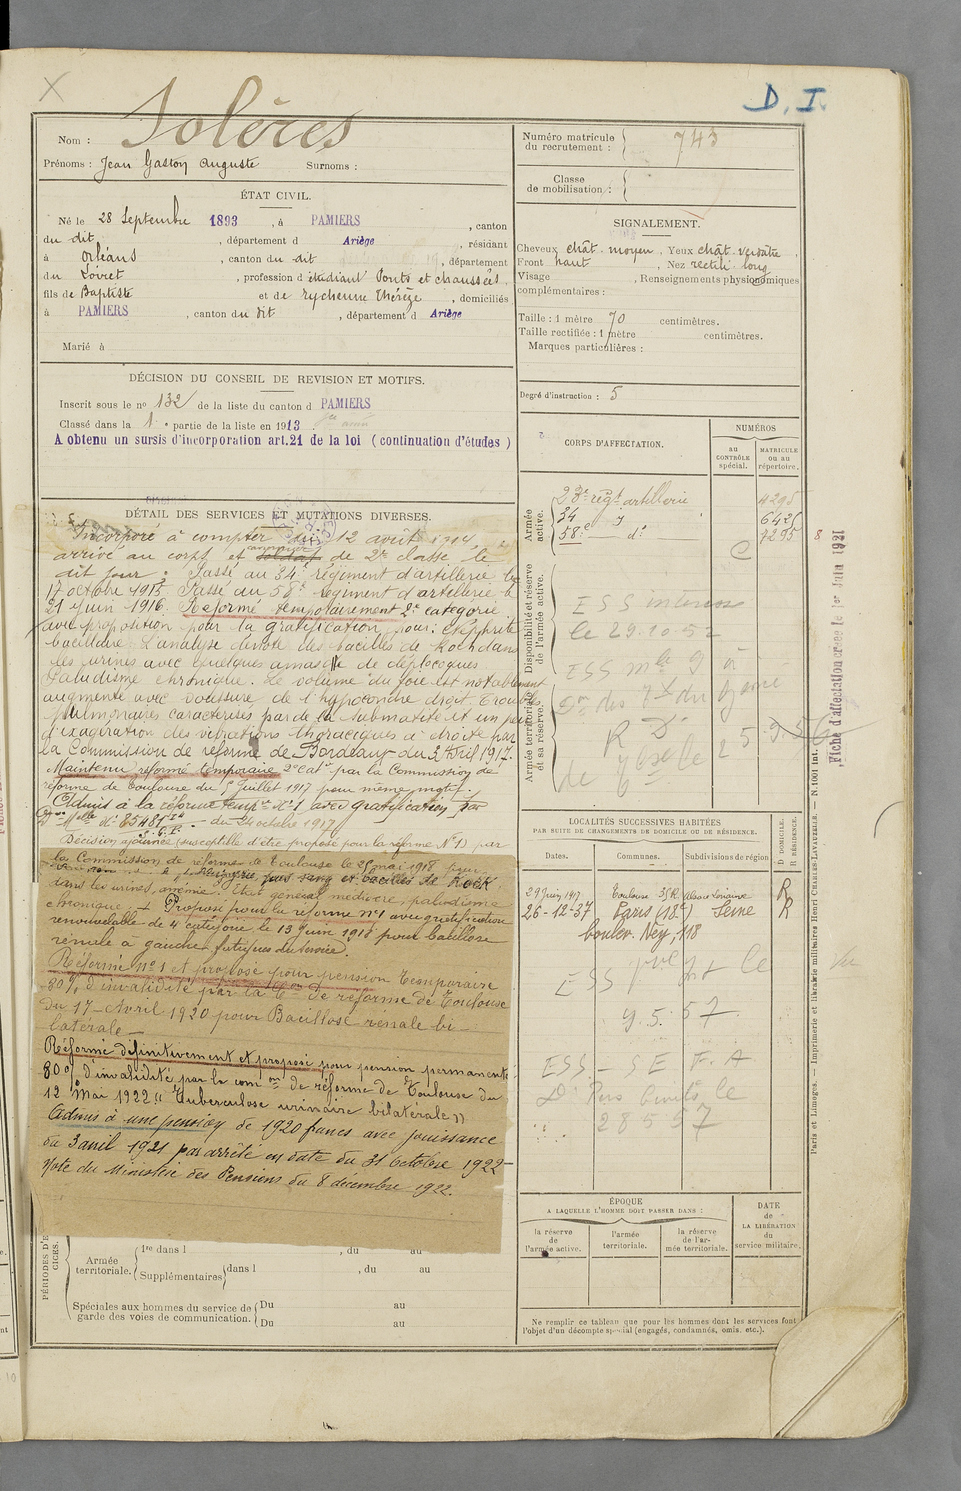 D. I.
Nom : Solères
Prénoms : Jean Gaston Auguste Surnoms :
ÉTAT CIVIL.
Né le 28 Septembre 1893, à PAMIERS, canton
du dit, département d Ariège, résidant
à Orléans, canton du dit, département
du Loiret, profession d'étudiant Ponts et chaussées,
fils de Baptiste et de Rycheune Thérèze, domiciliés
à PAMIERS, canton du dit, département d Ariège
Marié à
DÉCISION DU CONSEIL DE REVISION ET MOTIFS.
Inscrit sous le nº 132 de la liste du canton d PAMIERS
Classé dans la 1e partie de la liste en 1913.
A obtenu un sursis d'incorporation art.21 de la loi (continuation d'études)
DÉTAIL DES SERVICES ET MUTATIONS DIVERSES.
Incorporé à compter du 12 août 1914
arrivé au corps et soldat canonnier de 2e classe le
dit jour. Passé au 34e régiment d'artillerie le
17 octobre 1915 Passé au 58e régiment d'artillerie le
21 Juin 1916. Réformé temporairement 2e catégorie
avec proposition pour la gratification pour : Néphrite
bacillaire L'analyse dénote des bacilles de Koch dans
les urines avec quelques amas de diplocoques
Paludisme chronique. Le volume du foie est notablement
augmenté avec voussure de l'hypocondre droit. Troubles
pulmonaires caractérisés par de la submatité et un peu
d'exagération des vibrations thoraciques à droite par
la Commission de réforme de Bordeaux du 3 Avril 1917.
Maintenu réformé temporaire 2e cat. par la Commission de
réforme de Toulouse du 5 Juillet 1917 pour même motif.
Admis à la réforme temp. nº 1 avec gratification par
D. Mlle nº 25481 du 24 octobre 1917
Décision ajournée (susceptible d'être proposé pour la réforme Nº 1) par
la Commission de réforme de Toulouse le 25 mai 1918
pus sang et bacilles de Kock
dans les urines, anémie. Etat général médiocre, paludisme
chronique. + Proposé pour la réforme nº 1 avec gratification
renouvelable de 4e catégorie le 13 Juin 1918 pour bacillose
rénale à gauche, fatigues du service.
Réformé nº 1 et proposé pour pension temporaire
80% d'invalidité par la Con de réforme de Toulouse
du 17 Avril 1920 pour Bacillose rénale bi-
latérale
Réformé définitivement et proposé pour pension permanente
80% d'invalidité par la com on de réforme de Toulouse du
12 Mai 1922 "Tuberculose urinaire bilatérale"
Admis à une pension de 1920 francs avec jouissance
du 3 avril 1921 par arrêté en date du 31 Octobre 1922
Note du Ministère des Pensions du 8 décembre 1922.
PÉRIODES D'E
Armée territoriale. 1re dans l , du au
Supplémentaires dans l , du au
Spéciales aux hommes du service de garde des voies de communication. Du au
Du au
Numéro matricule du recrutement : 743
Classe de mobilisation :
SIGNALEMENT.
Cheveux chât. moyen, Yeux chât. verdâtre,
Front haut, Nez rectili. long
Visage , Renseignements physionomiques
complémentaires :
Taille : 1 mètre 70 centimètres.
Taille rectifiée : 1 mètre centimètres.
Marques particulières :
Degré d'instruction : 5
CORPS D'AFFECTATION.
NUMÉROS
au CONTRÔLE spécial.
MATRICULE ou au répertoire.
Armée active.
28e régt artillerie 4295
34 6425
58e d° 7295
Disponibilité et réserve de l'armée active.
Armée territoriale et sa réserve.
ESS interne
le 29.10.52
Fiche d'affectation créée le 1er Juin 1921
LOCALITÉS SUCCESSIVES HABITÉES
PAR SUITE DE CHANGEMENTS DE DOMICILE OU DE RÉSIDENCE.
Dates. Communes. Subdivisions de région
D DOMICILE. R RÉSIDENCE.
29 Juin 1917 Toulouse 35 R. Alsace Lorraine R
26-12-37 Paris (18e) Seine R
boulev. Ney, 118
ESS
9.5.57
ESS. — S E F A
28 5 57
ÉPOQUE
A LAQUELLE L'HOMME DOIT PASSER DANS :
la réserve de l'armée active.
l'armée territoriale.
la réserve de l'armée territoriale.
DATE de LA LIBÉRATION du service militaire.
Ne remplir ce tableau que pour les hommes dont les services font
l'objet d'un décompte spécial (engagés, condamnés, omis, etc.).
Paris et Limoges. — Imprimerie et librairie militaires Henri CHARLES-LAVAUZELLE. — N. 1001 int.